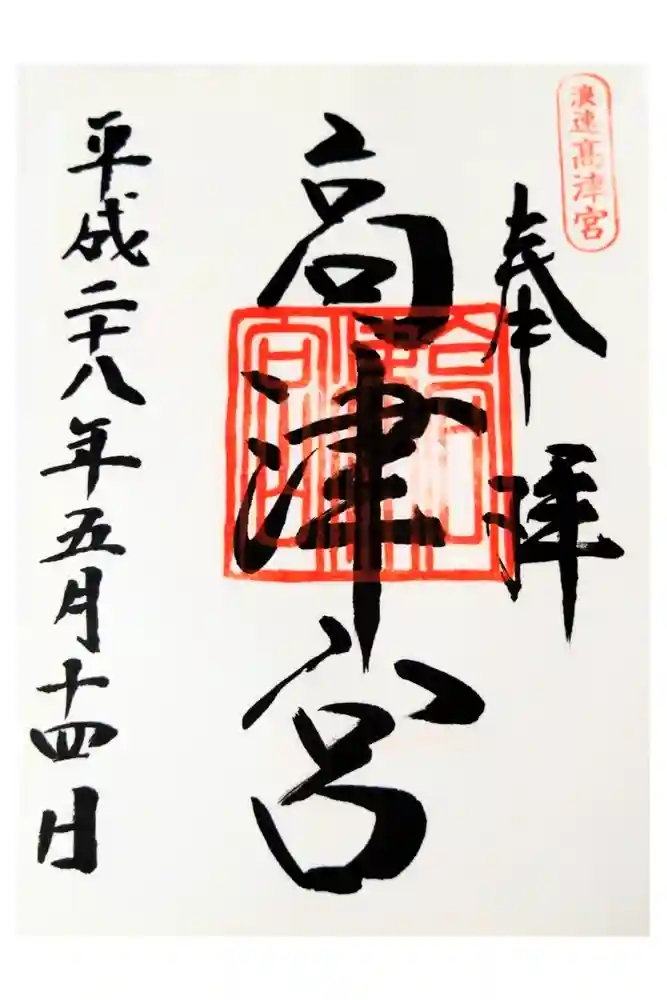 浪速高津宮
奉拝
高津宮
高津宮
平成二十八年五月十四日